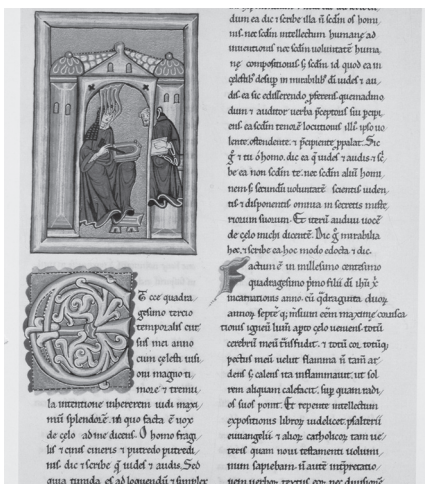 ET ecce quadra
gesimo tercio
temporalis cur
sus mei anno
cum celesti uisi
oni magno ti
more & tremu
la intentione inhererem uidi maxi
mū splendorē. in quo facta ē uox
de celo ad me dicens. O homo fragi
lis & cinis cineris & putredo putredi
nis. dic & scribe q̄ uides & audis. Sed
quia timida es ad loquendū & simplex
dum ea dic & scribe illa n̄ scdm os homi
nis. nec scdm intellectum humanę ad
inuentionis nec scdm uoluntatē huma
nę compositionis s; scdm id quod ea in
celestib; desup in mirabilib; dī uides & au
dis. ea sic edisserendo pferens quemadmo
dum & auditor uerba pceptoris sui pcipi
ens. ea scdm tenorē locutionis illi' ipso uo
lente. ostendente. & pcipiente ppalat. Sic
g & tu ó homo. dic ea q̄ uides & audis. & sc'
be ea non scdm te. nec scdm aliū homi
nem s; secundū uoluntatē scientis uiden
tis & disponentis omnia in secretis miste
riorum suorum. Et iterū audiui uocē
de celo michi dicentē. Dic g mirabilia
hęc. & scribe ea hoc modo edocta & dic.
Factum ē in millesimo centesimo
quadragesimo pmo filii dī ihū x'
incarnationis anno. cū q̄draginta duoꝝ
annoꝝ septē q; m̄siū eēm maximę corusca
tionis igneū lum̄ apto celo ueniens totū
cerebrū meū t̄nsfudit. & totū cor totūq;
pectus meū uelut flamma n̄ tam̄ ar
dens s; calens ita inflammauit. ut sol
rem aliquam calefacit. sup quam radi
os suos ponit. Et repente intellectum
expositionis libroꝝ uidelicet psalterii
euuangelii & alioꝝ catholicoꝝ tam ue
teris quam noui testamenti uolumi
num sapiebam. n̄ autē int̄pretatio